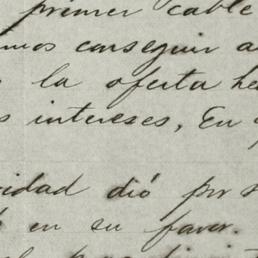 primer cable
mos conseguir a
la oferta he
s intereses, En
idad dió por s
en su favor.